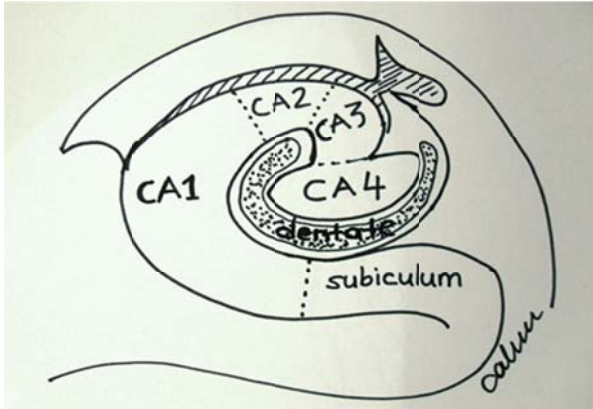 CA2
CA3
CA1
CA4
dentate
subiculum